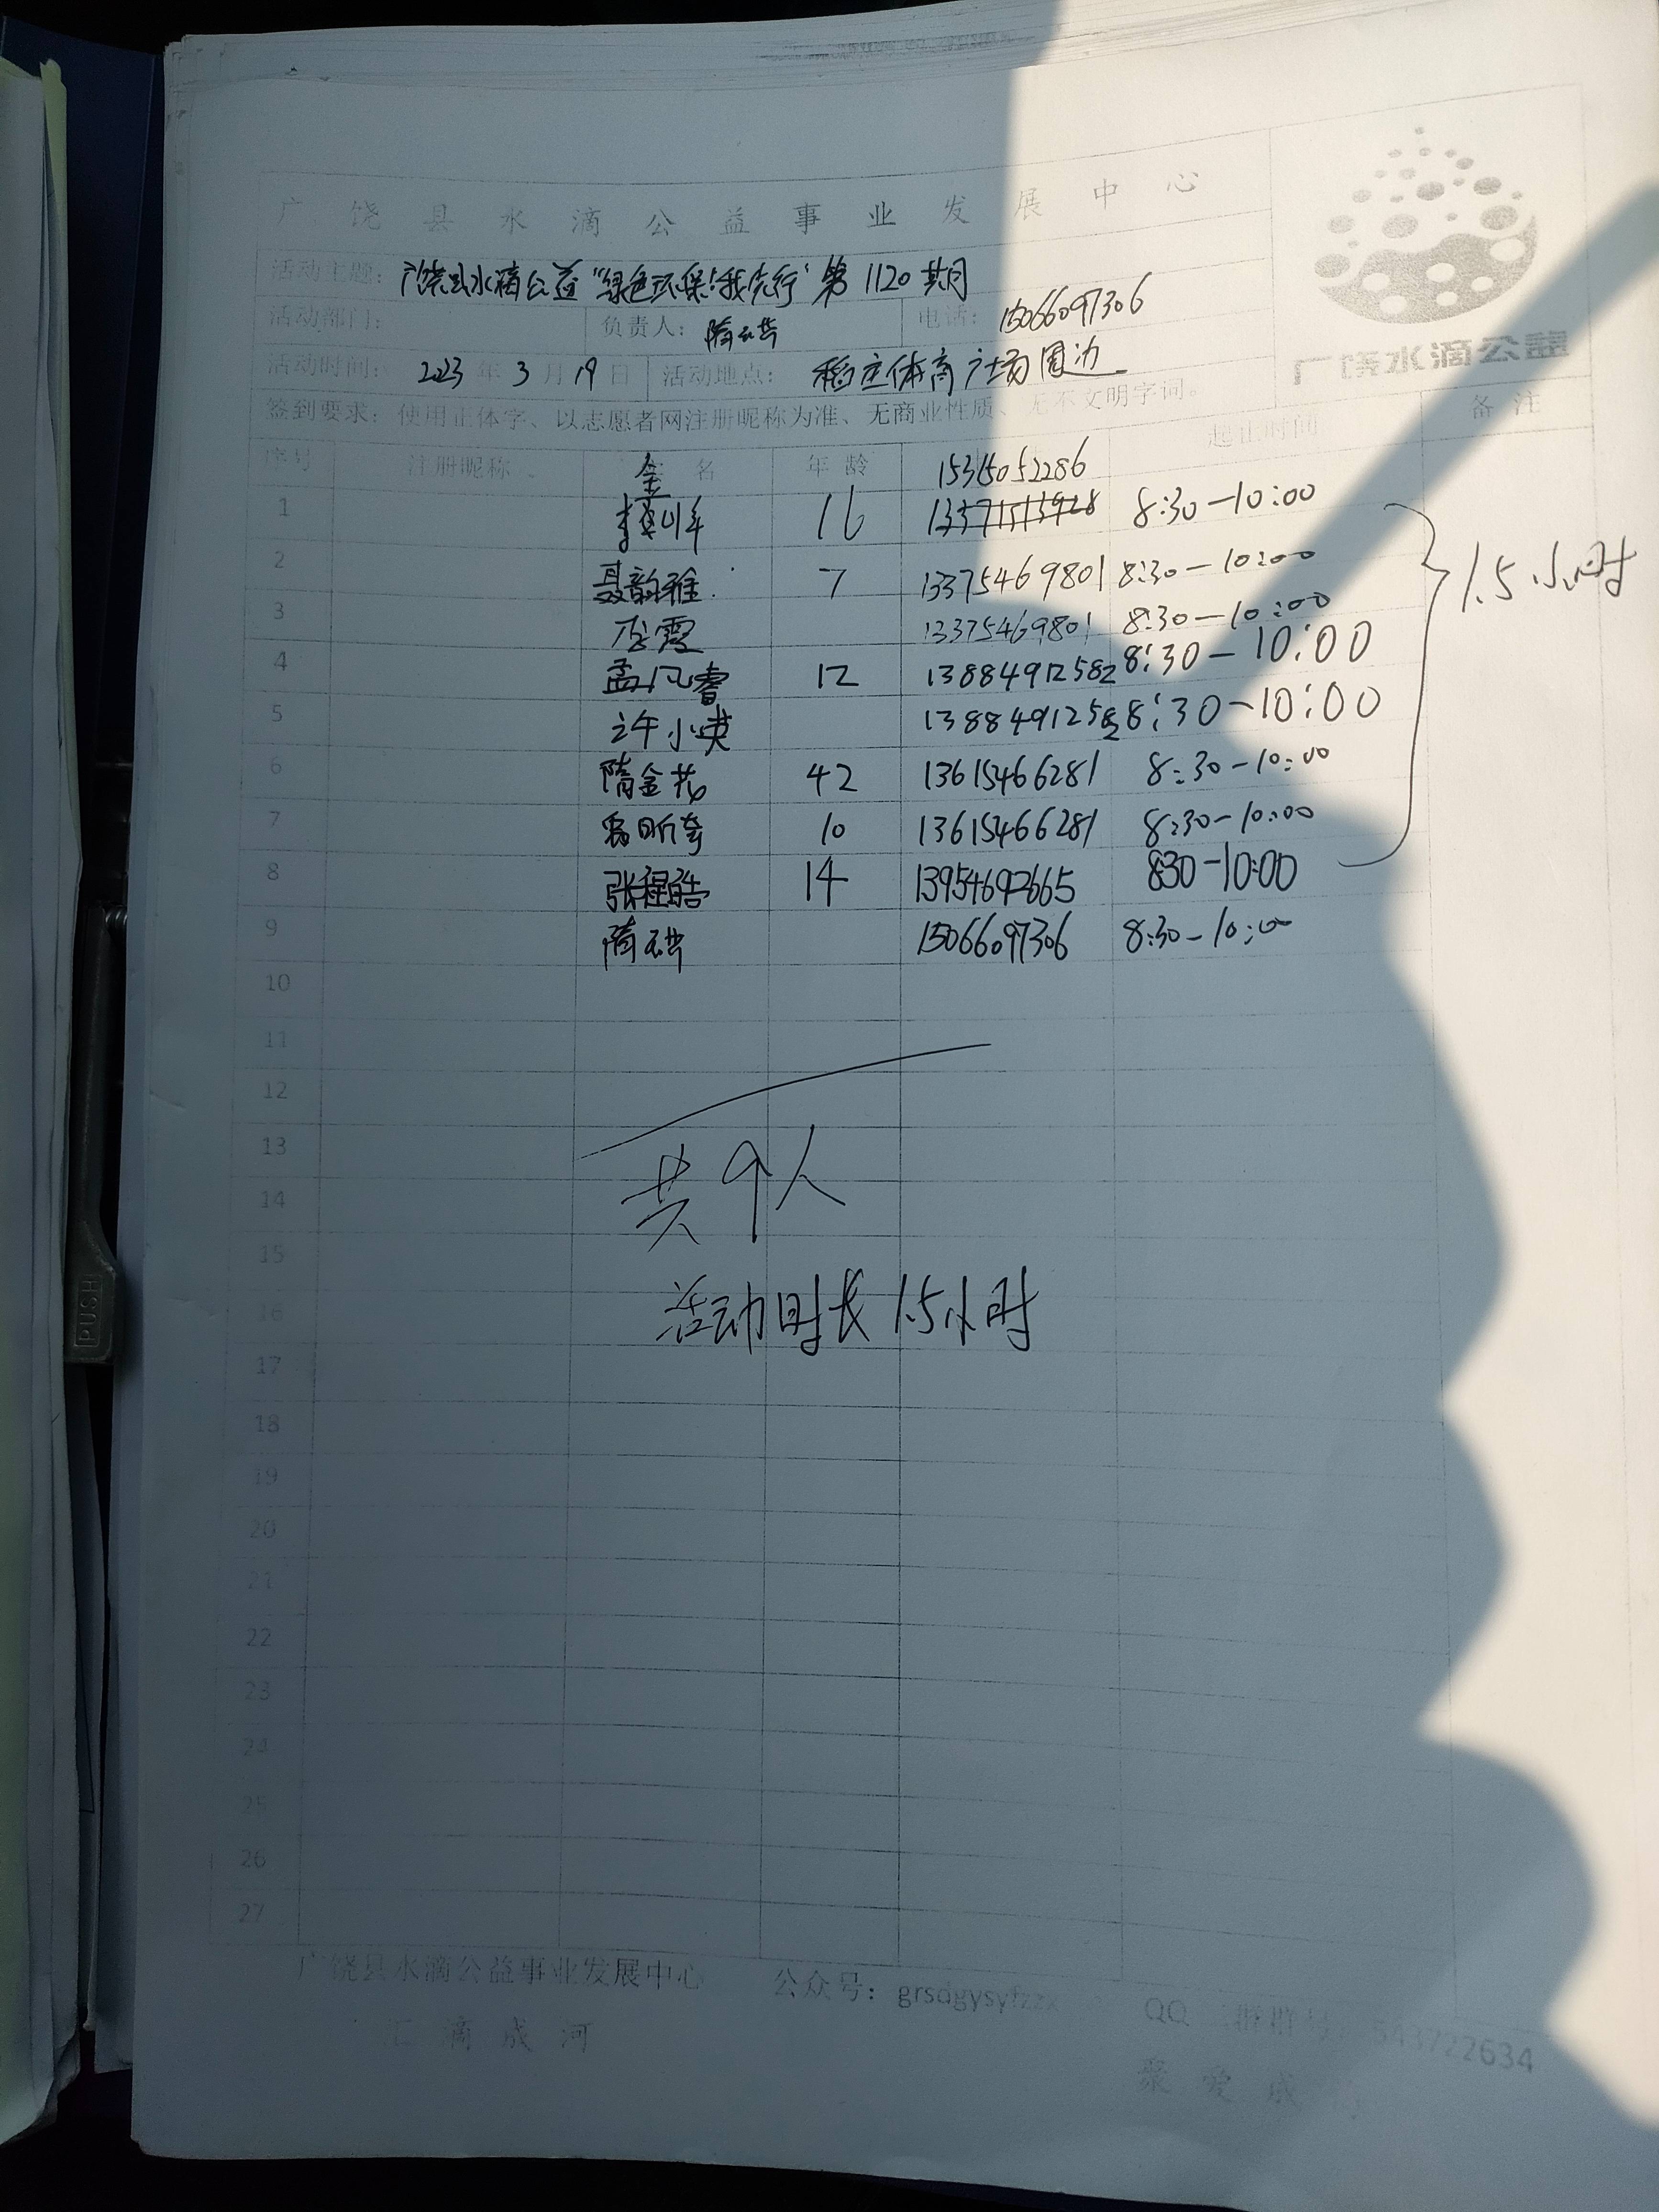 广饶县水滴公益事业发展中心
活动主题: 广饶县水滴公益"绿色环保!我先行"第1120期
活动部门: 负责人: 隋 电话: 15066097306
活动时间: 2023年3月19日 活动地点: 稻庄体育广场周边
广饶水滴公益
签到要求: 使用正体字、以志愿者网注册昵称为准、无商业性质、无不文明字词。
序号 注册昵称 名 年龄 15315052286 起止时间 备注
金
1 16 13371513928 8:30-10:00
2 聂韵雅 7 13375469801 8:30-10:00
1.5小时
3 李霞 13375469801 8:30-10:00
4 孟凡睿 12 13884912582 8:30-10:00
5 许小英 13884912582 8:30-10:00
6 隋金花 42 13615466281 8:30-10:00
7 10 13615466281 8:30-10:00
8 张程皓 14 13954692665 830-10:00
9 隋 15066097306 8:30-10:00
10
11
12
13
共9人
14
15
16
活动时长1.5小时
17
18
19
20
21
22
23
24
25
26
27
广饶县水滴公益事业发展中心 公众号: grsdgysyfzzx QQ 群群号 543722634
汇滴成河 聚爱成
PUSH